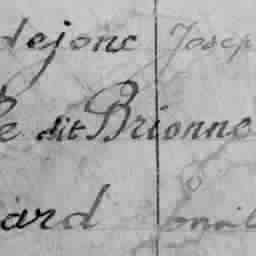 dejonc Josep
e dit Brionne
ard